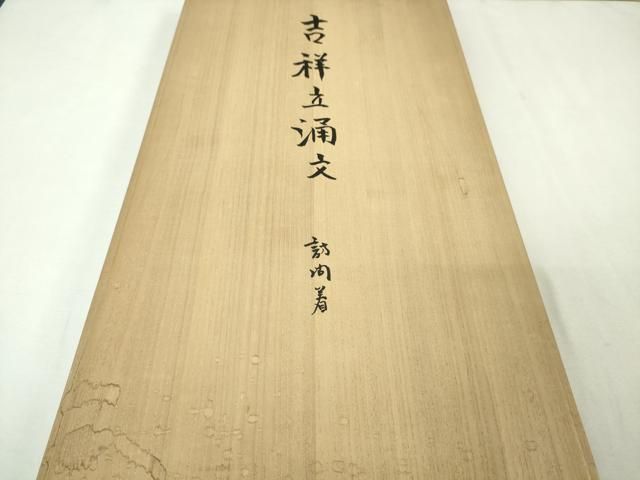 吉祥立涌文
訪問着